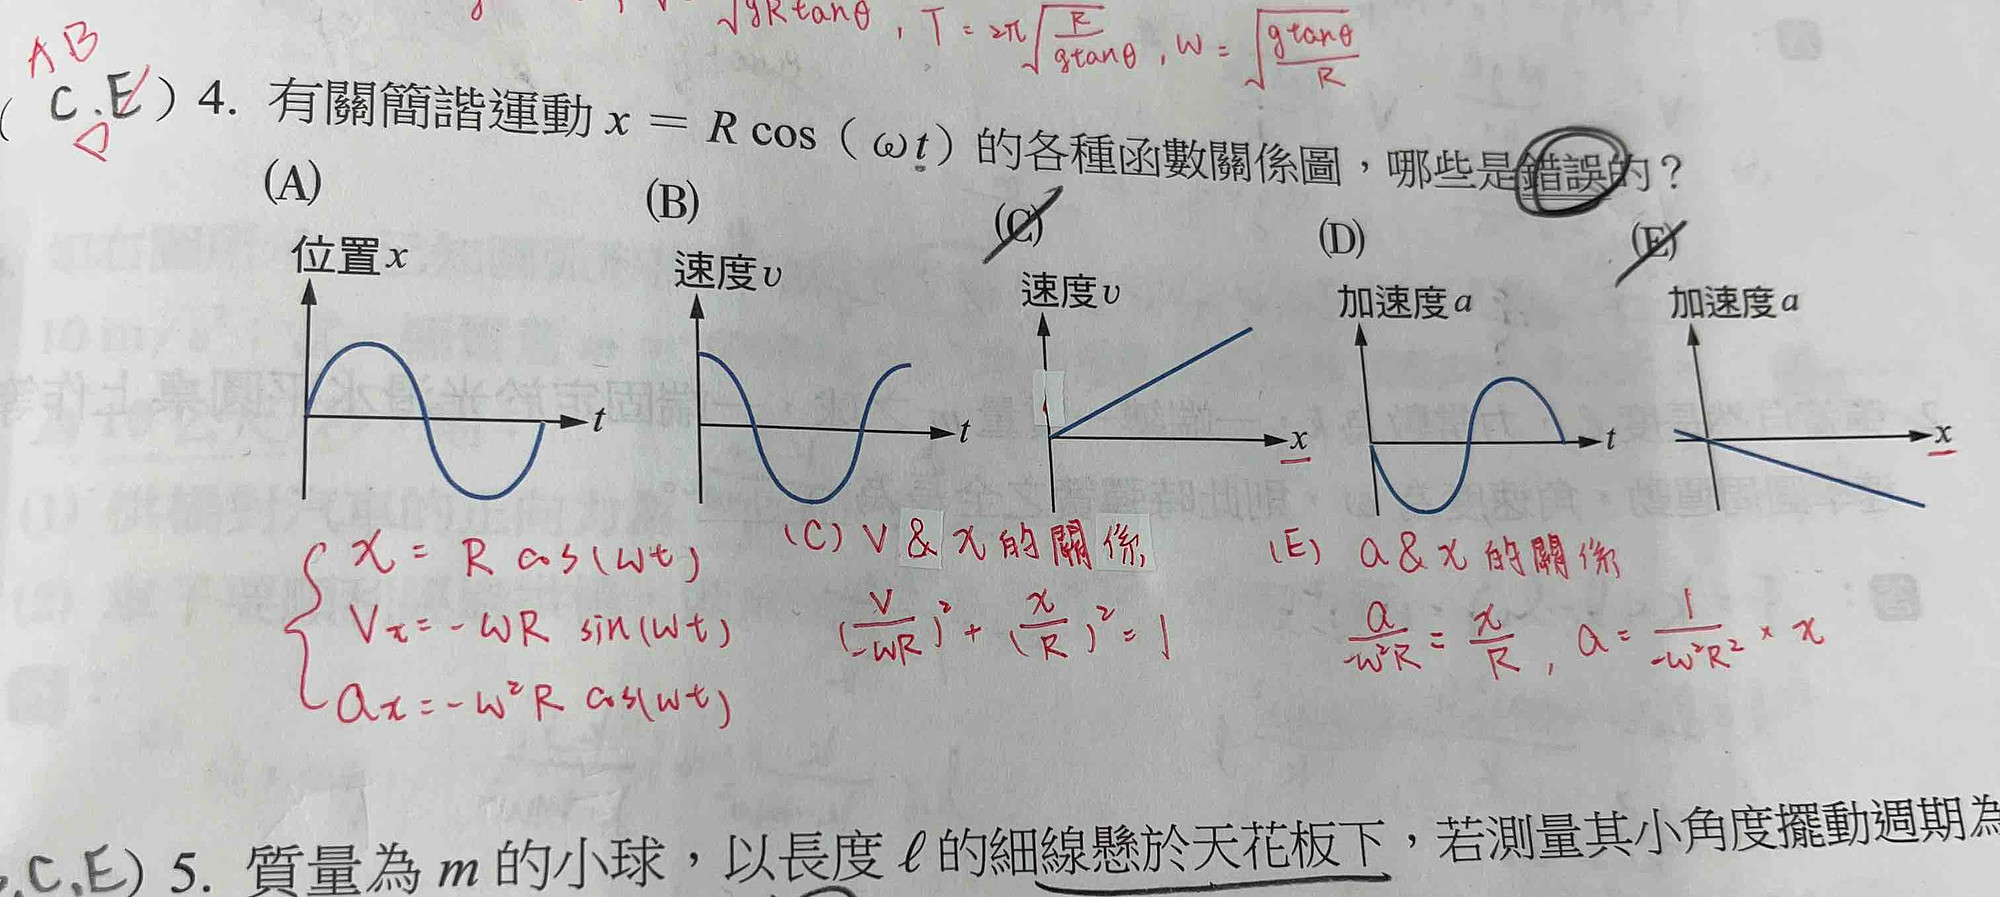 √gRtanθ , T = 2π√(R/gtanθ) , W = √(gtanθ/R)
AB
( C.E ) 4. 有關簡諧運動 x = R cos ( ωt ) 的各種函數關係圖，哪些是錯誤的？
D
(A) (B) (C) (D) (E)
位置 x 速度 υ 速度 υ 加速度 a 加速度 a
t t x t x
x = R cos(wt)
Vx = -wR sin(wt)
ax = -w²R cos(wt)
(C) V & x 的關係
(V/-wR)² + (x/R)² = 1
(E) a & x 的關係
a/-w²R = x/R , a = 1/-w²R² × x
,C,E) 5. 質量為 m 的小球，以長度 ℓ 的細線懸於天花板下，若測量其小角度擺動週期為